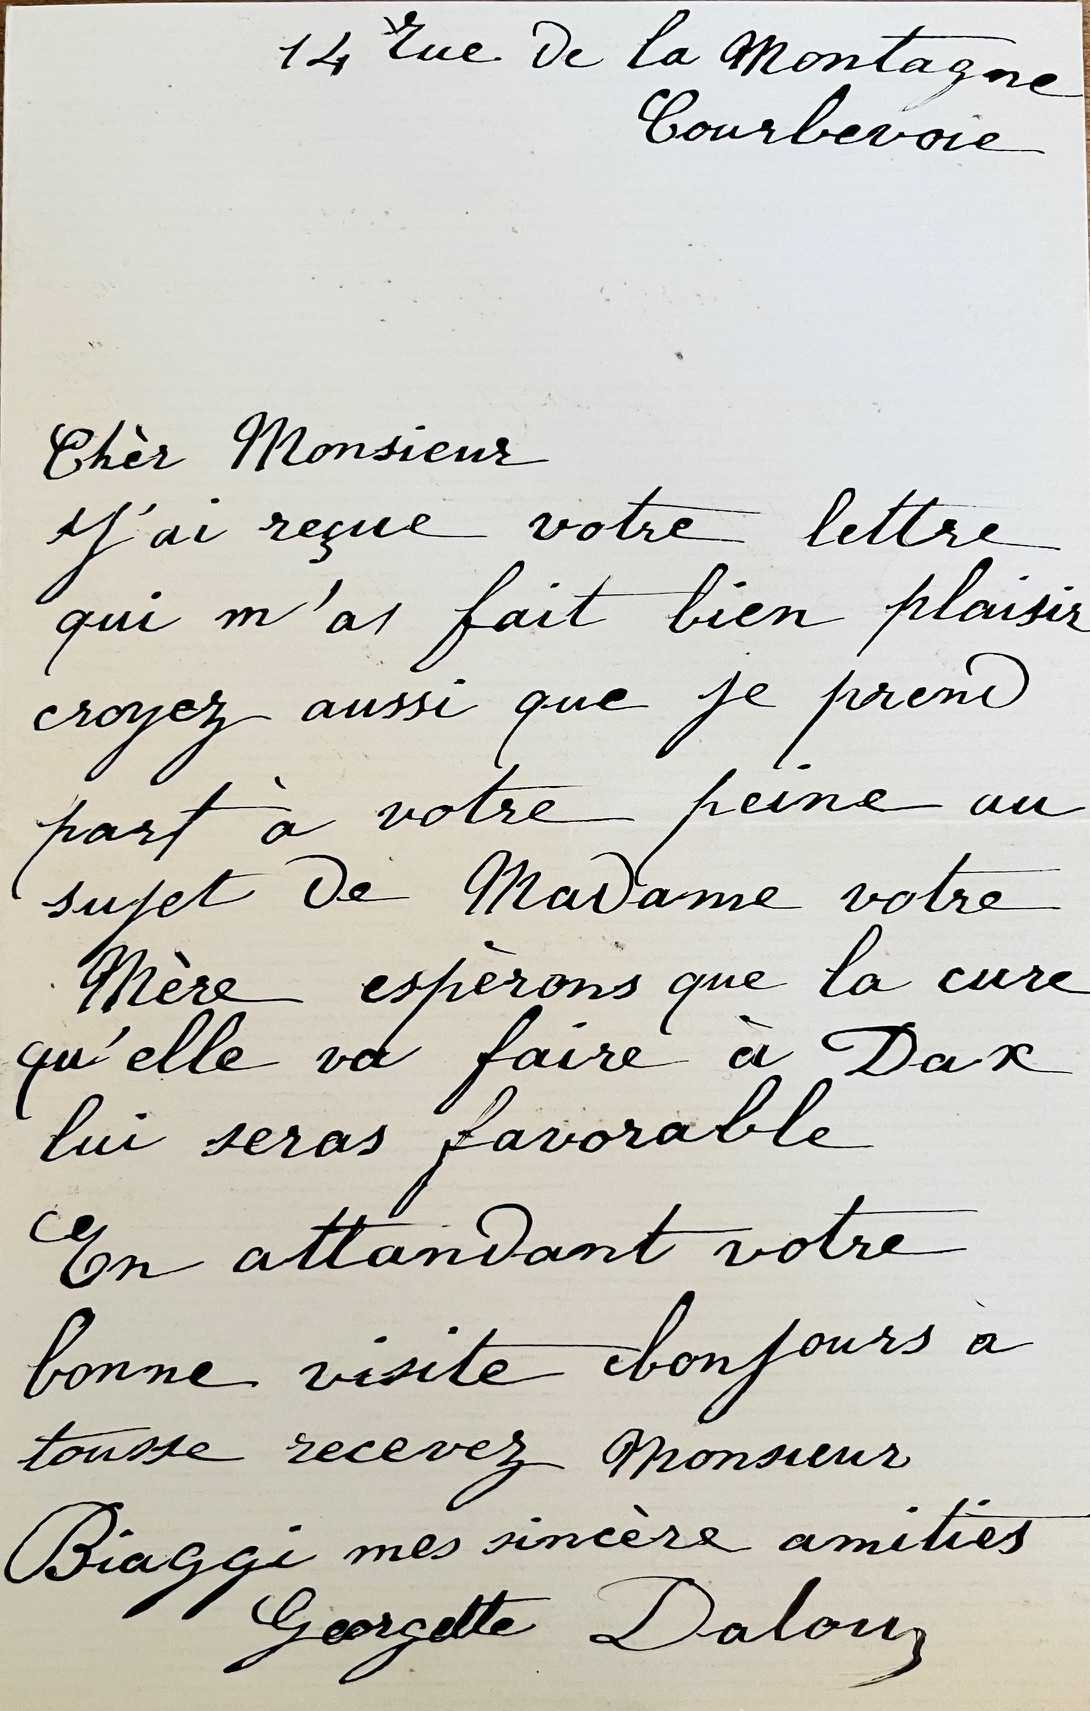 14 rue de la Montagne
Courbevoie
Chèr Monsieur
J'ai reçue votre lettre
qui m'as fait bien plaisir
croyez aussi que je prend
part à votre peine au
sujet de Madame votre
Mère espèrons que la cure
qu'elle va faire à Dax
lui seras favorable
En attandant votre
bonne visite bonjours à
tousse recevez Monsieur
Biaggi mes sincère amities
Georgette Dalou